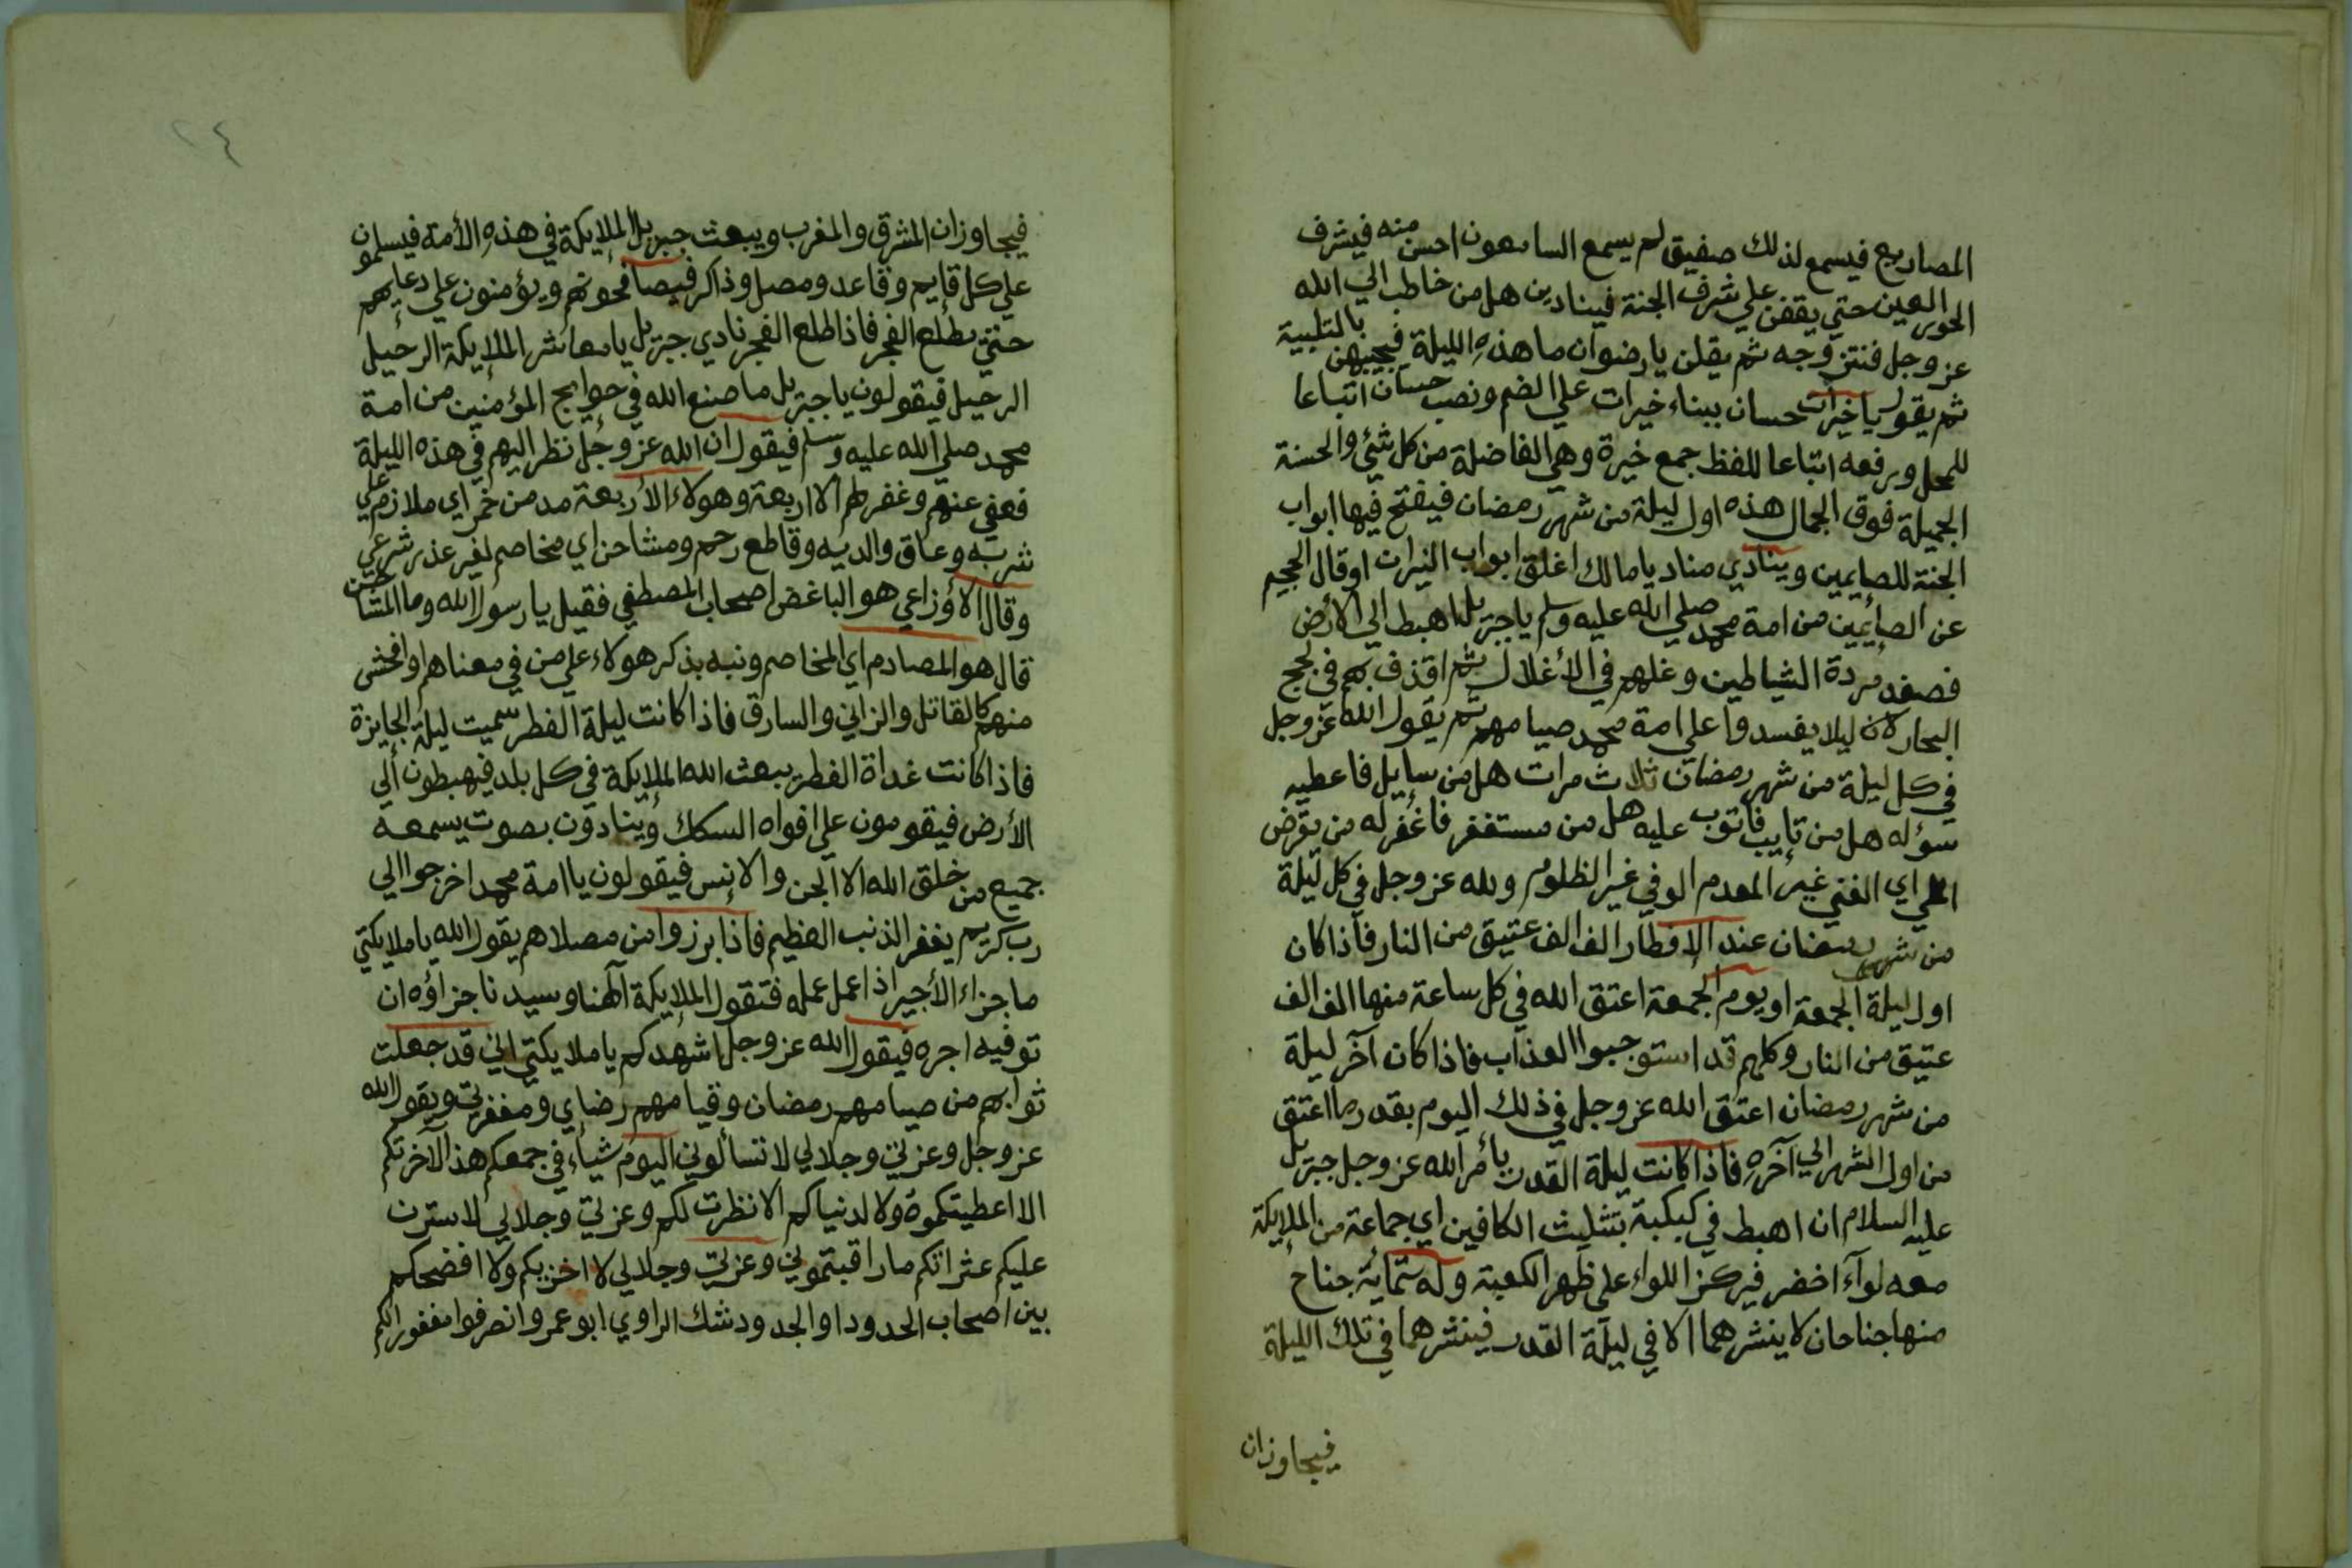 المصاريع فيسمع لذلك صفيق لم يسمع السامعون احسن منه فيشرف
الحور العين حتي يقفن علي شرف الجنة فينادين هل من خاطب الي الله
عز وجل فنتزوجه ثم يقلن يارضوان ما هذه الليلة فيجيبهن بالتلبية
ثم يقول ياخيرات حسان ببناء خيرات علي الضم ونصب حسان اتباعا
للمحل ورفعه اتباعا للفظ جمع خيرة وهي الفاضلة من كل شئي والحسنة
الجميلة فوق الجمال هذه اول ليلة من شهر رمضان فيفتح فيها ابواب
الجنة للصايمين وينادي مناد يامالك اغلق ابواب النيران اوقال الجحيم
عن الصايمين من امة محمد صلي الله عليه وسلم ياجبريل اهبط الي الأرض
فصفد مردة الشياطين وغلهم في الأغلال ثم اقذف بهم في لجج
البحار لان ليلا يفسدوا علي امة محمد صيامهم ثم يقول الله عز وجل
في كل ليلة من شهر رمضان ثلاث مرات هل من سايل فاعطيه
سؤله هل من تايب فاتوب عليه هل من مستغفر فاغفر له من يقرض
الملي اي الغني غير المعدم الوفي غير الظلوم ولله عز وجل في كل ليلة
من شهر رمضان عند الإفطار الف الف عتيق من النار فاذا كان
اول ليلة الجمعة او يوم الجمعة اعتق الله في كل ساعة منها الف الف
عتيق من النار وكلهم قد استوجبوا العذاب فاذا كان آخر ليلة
من شهر رمضان اعتق الله عز وجل في ذلك اليوم بقدر ما اعتق
من اول الشهر الي آخره فاذا كانت ليلة القدر يأمر الله عز وجل جبريل
عليه السلام ان اهبط في كبكبة بتثليث الكافين اي جماعة من الملايكة
معه لوآء اخضر فيركز اللواء علي ظهر الكعبة وله ستماية جناح
منها جناحان لا ينشرهما الا في ليلة القدر فينشرهما في تلك الليلة
فيجاوزان
٢٤
فيجاوزان المشرق والمغرب ويبعث جبريل الملايكة في هذه الأمة فيسلمون
علي كل قايم وقاعد ومصل وذاكر فيصافحونهم ويؤمنون علي دعايهم
حتي يطلع الفجر فاذا طلع الفجر نادي جبريل يامعاشر الملايكة الرحيل
الرحيل فيقولون ياجبريل ما صنع الله في حوايج المؤمنين من امة
محمد صلي الله عليه وسلم فيقول ان الله عز وجل نظر اليهم في هذه الليلة
فعفي عنهم وغفر لهم الا اربعة وهولاء الأربعة مدمن خمر اي ملازم علي
شربه وعاق والديه وقاطع رحم ومشاحن اي مخاصم لغير عذر شرعي
وقال الاوزاعي هو الباغض اصحاب المصطفي فقيل يارسول الله وما المشاحن
قال هو المصادم اي المخاصم ونبه بذكر هولاء علي من في معناهم او افحش
منهم كالقاتل والزاني والسارق فاذا كانت ليلة الفطر سميت ليلة الجايزة
فاذا كانت غداة الفطر يبعث الله الملايكة في كل بلد فيهبطون الي
الأرض فيقومون علي افواه السكك وينادون بصوت يسمعه
جميع من خلق الله الا الجن والإنس فيقولون ياامة محمد اخرجوا الي
رب كريم يغفر الذنب العظيم فاذا برزوا من مصلاهم يقول الله ياملايكتي
ما جزاء الأجير اذا عمل عمله فتقول الملايكة آلهنا وسيدنا جزاؤه ان
توفيه اجره فيقول الله عز وجل اشهدكم ياملايكتي اني قد جعلت
ثوابهم من صيامهم رمضان وقيامهم رضاي ومغفرتي ويقول الله
عز وجل وعزتي وجلالي لا تسألوني اليوم شياء في جمعكم هذا لآخرتكم
الا اعطيتكموه ولا لدنياكم الا نظرت لكم وعزتي وجلالي لاسترن
عليكم عثراتكم ما راقبتموني وعزتي وجلالي لا اخزيكم ولا افضحكم
بين اصحاب الحدود او الجدود شك الراوي ابو عمر وانصرفوا مغفورا لكم